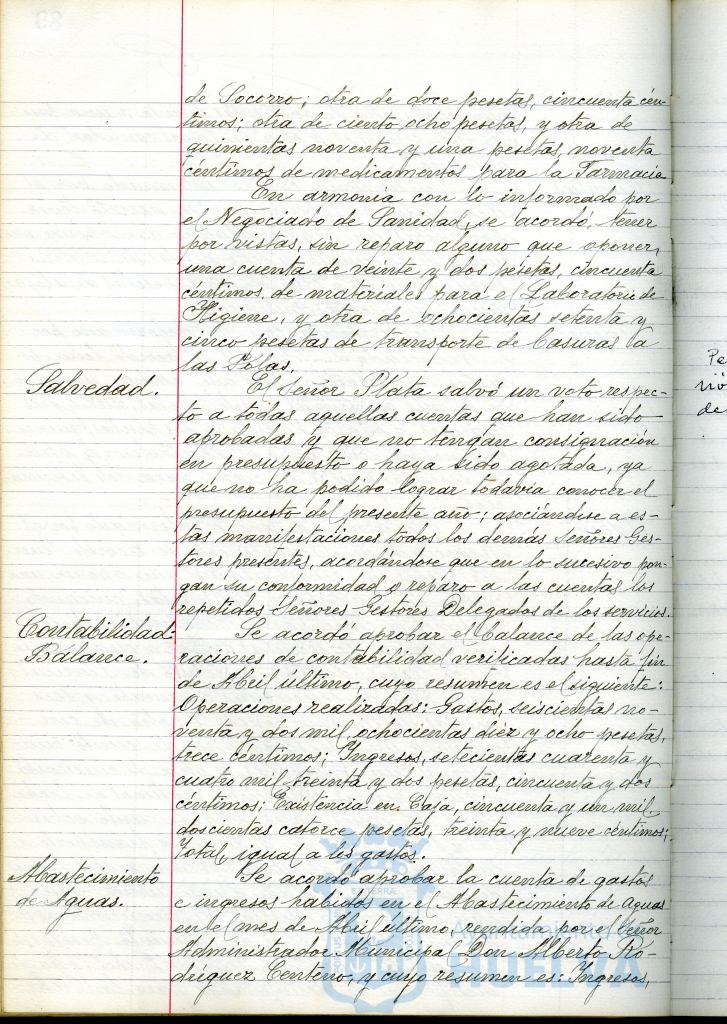 de Socorro; otra de doce pesetas, cincuenta cén-
timos; otra de ciento ocho pesetas, y otra de
quinientas noventa y una pesetas, noventa
céntimos de medicamentos para la Farmacia.
En armonía con lo informado por
el Negociado de Sanidad, se acordó, tener
por vistas, sin reparo alguno que oponer,
una cuenta de veinte y dos pesetas, cincuenta
céntimos, de materiales para el Laboratorio de
Higiene, y otra de ochocientas setenta y
cinco pesetas de transporte de basuras a
las Polas.
Salvedad.
El Señor Plata salvó un voto respec-
to a todas aquellas cuentas que han sido
aprobadas y que no tengan consignación
en presupuesto o haya sido agotada, ya
que no ha podido lograr todavía conocer el
presupuesto del presente año; asociándose a es-
tas manifestaciones todos los demás Señores Ges-
tores presentes, acordándose que en lo sucesivo pon-
gan su conformidad o reparo a las cuentas los
repetidos Señores Gestores Delegados de los servicios.
Contabilidad:
Balance.
Se acordó aprobar el balance de las ope-
raciones de contabilidad verificadas hasta fin
de Abril último, cuyo resumen es el siguiente:
Operaciones realizadas: Gastos, seiscientas no-
venta y dos mil, ochocientas diez y ocho pesetas,
trece céntimos; Ingresos, setecientas cuarenta y
cuatro mil treinta y dos pesetas, cincuenta y dos
céntimos; Existencia en Caja, cincuenta y un mil
doscientas catorce pesetas, treinta y nueve céntimos;
Total, igual a los gastos.
Abastecimiento
de Aguas.
Se acordó aprobar la cuenta de gastos
e ingresos habidos en el Abastecimiento de aguas
en el mes de Abril último, rendida por el Señor
Administrador Municipal Don Alberto Ro-
dríguez Centeno, y cuyo resumen es: Ingresos,
Pe
nió
de
89